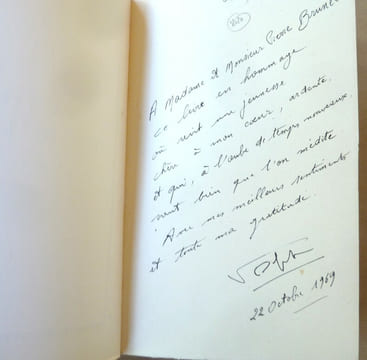 A Madame et Monsieur Pierre Brunel
ce livre en hommage
où vit une jeunesse
chère à mon cœur, ardente,
et qui, à l'aube de temps nouveaux,
vaut bien que l'on médite.
Avec mes meilleurs sentiments
et toute ma gratitude.
22 Octobre 1969